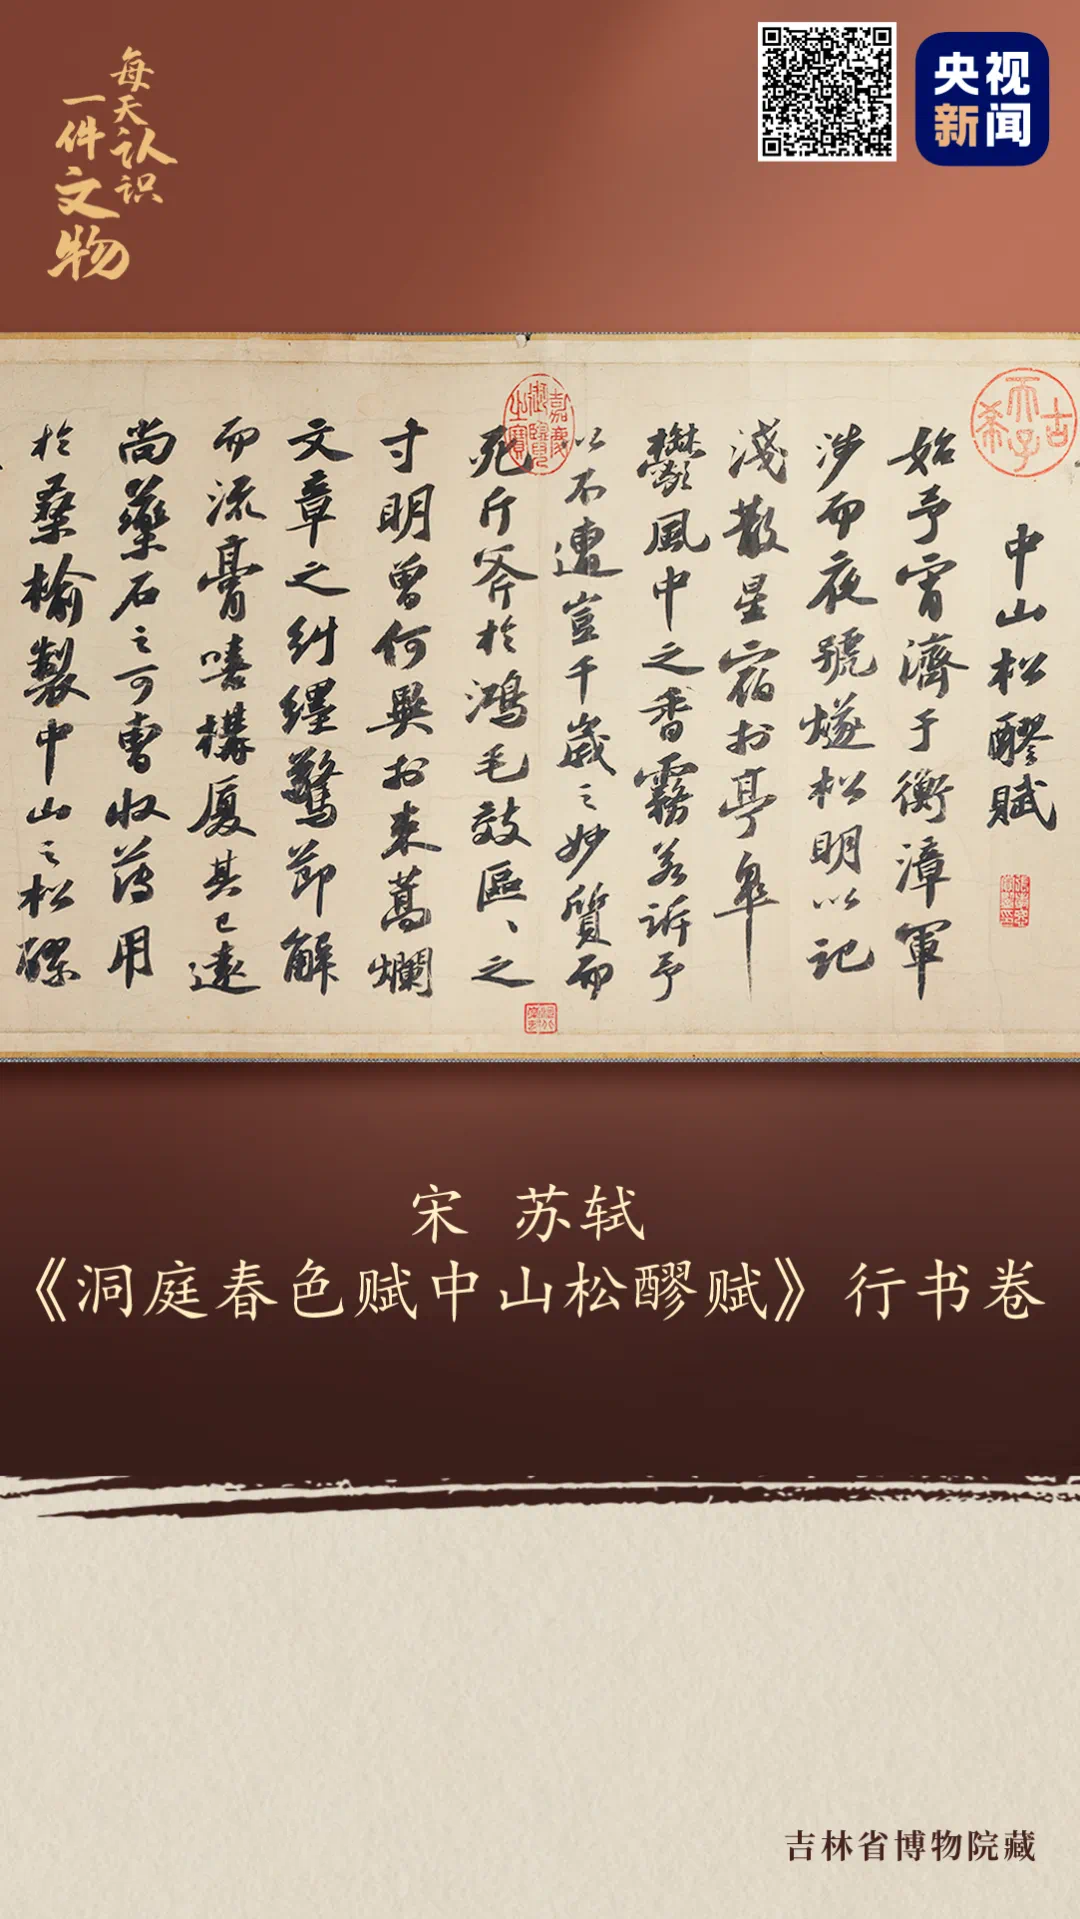 每天认识
一件文物
央视
新闻
古希天子
嘉慶御覽之寶
中山松醪賦
始予宵濟于衡漳軍
涉而夜號燧松明以記
淺散星宿於亭皐
鬱風中之香霧若訴予
以不遭豈千歲之妙質而
死斤斧於鴻毛效區、之
寸明曾何異於束蒿爛
文章之糾纆驚節解
而流膏嘻構厦其已遠
尚藥石之可曹收薄用
於桑榆製中山之松醪
宋 苏轼
《洞庭春色赋中山松醪赋》行书卷
吉林省博物院藏